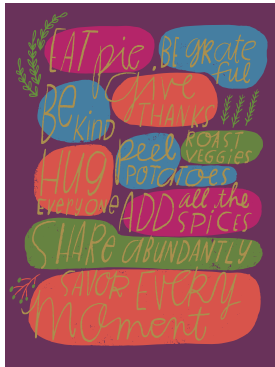 EAT pie
BE grateful
Be KIND
give THANKS
ROAST VEGGIES
peel POTATOES
HUG EVERYONE
ADD all the SPICES
SHARE ABUNDANTLY
SAVOR EVERY
Moment